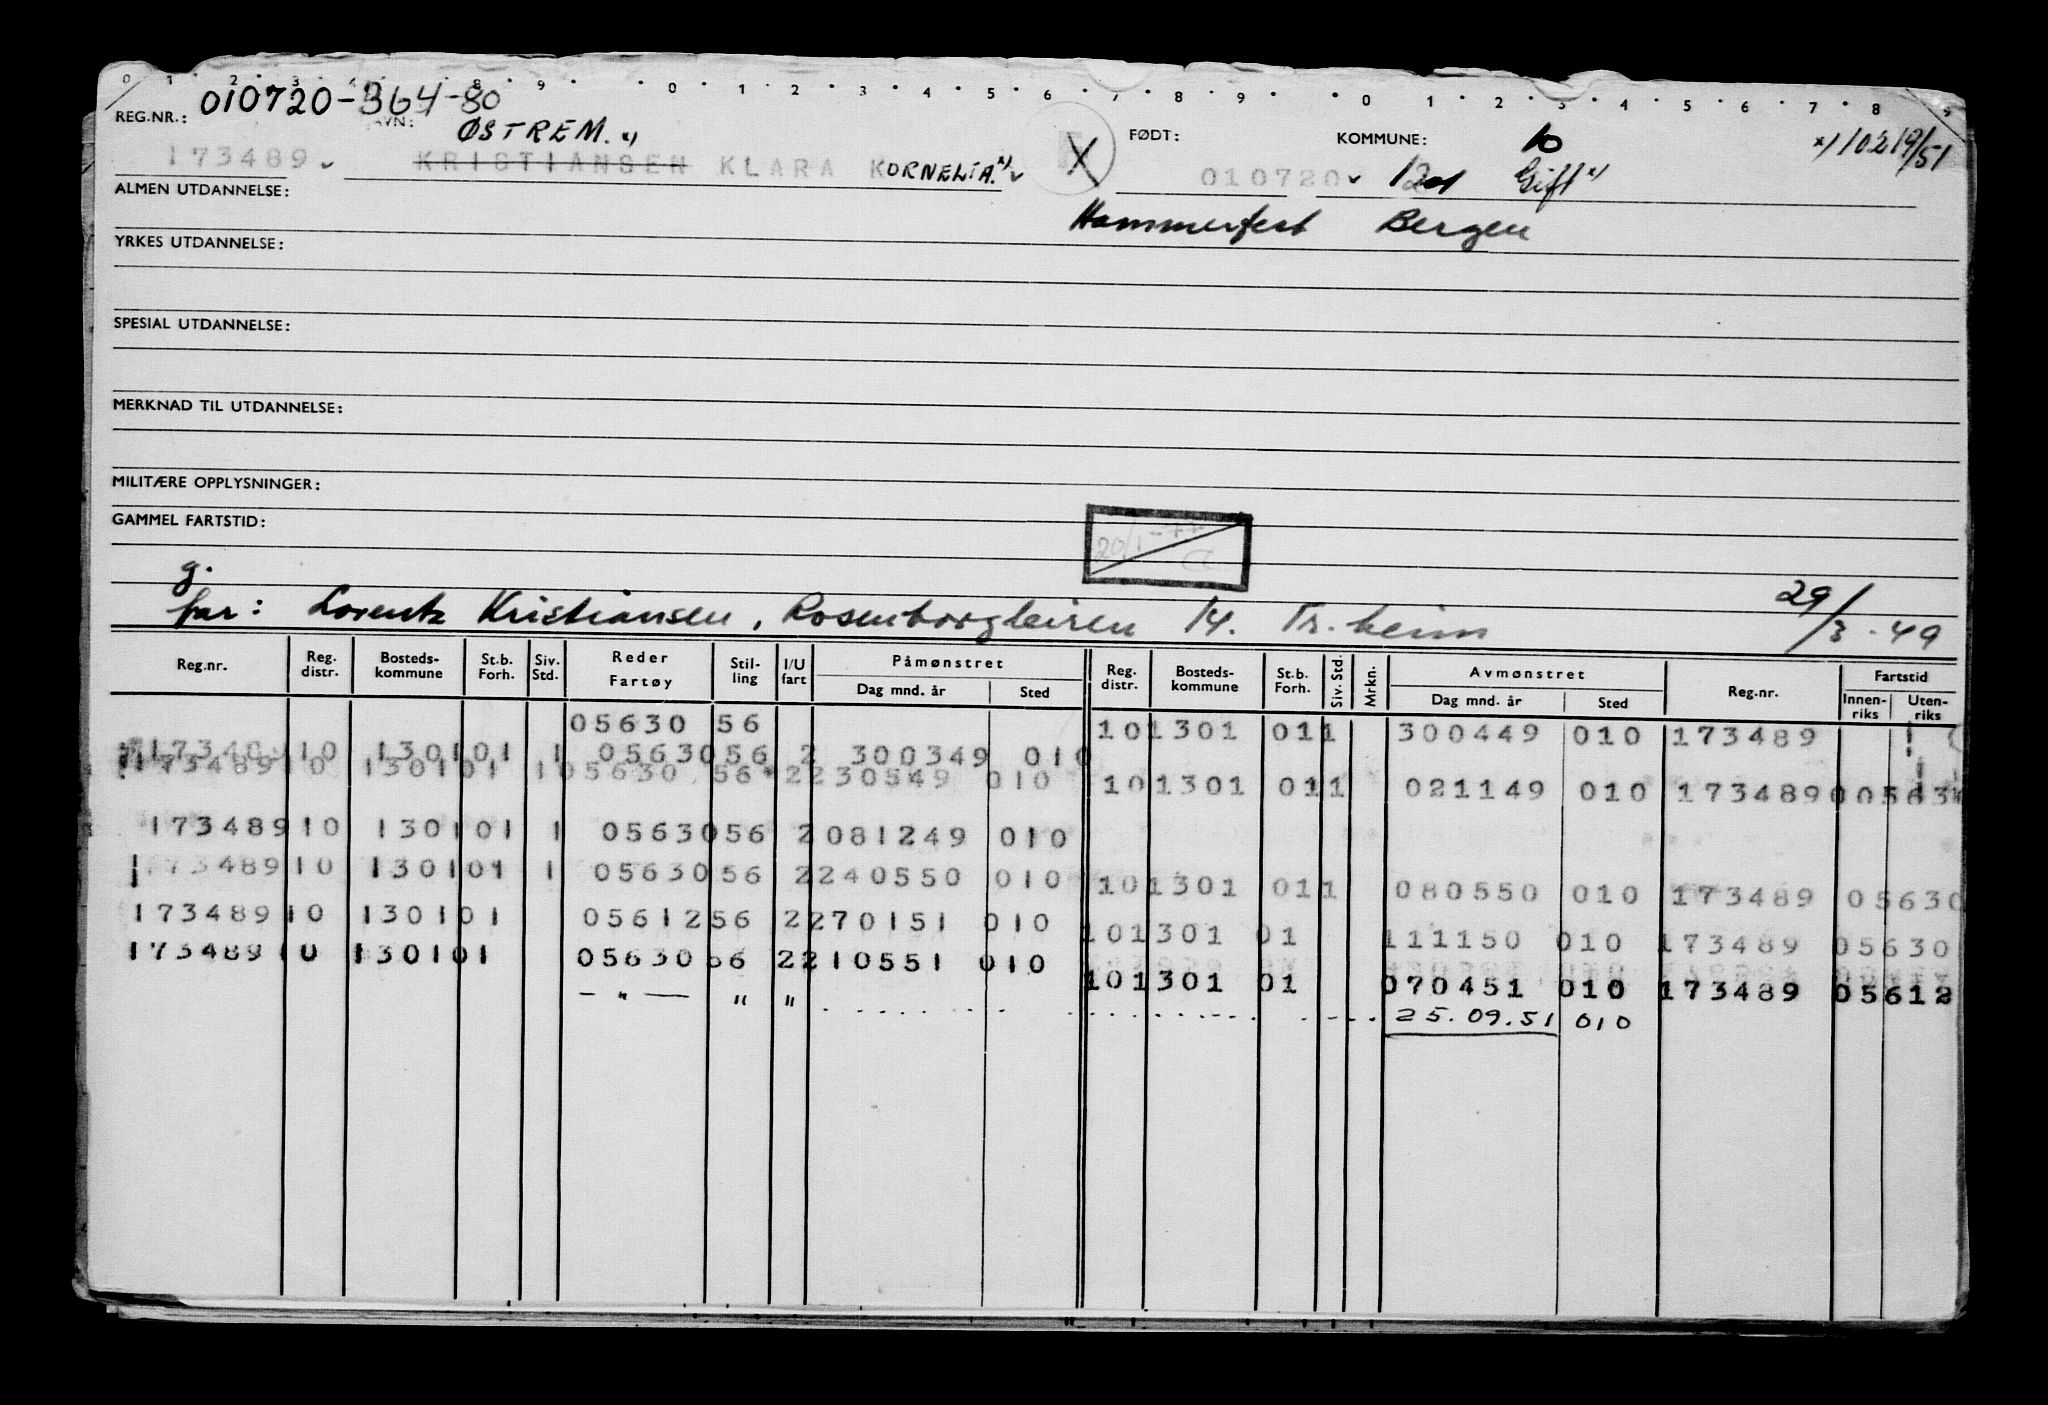 0 1 2 3 8 9 0 1 2 3 4 5 6 7 8 9 0 1 2 3 4 5 6 7 8 9
REG.NR.: 010720-364-80
ØSTREM. x)
FØDT: KOMMUNE: 10 x) 10219/51
173489 KRISTIANSEN KLARA KORNELIA. x) X 010720 1201 Gift x)
ALMEN UTDANNELSE:
Hammerfest Bergen
YRKES UTDANNELSE:
SPESIAL UTDANNELSE:
MERKNAD TIL UTDANNELSE:
MILITÆRE OPPLYSNINGER:
GAMMEL FARTSTID:
g.
far: Lorentz Kristiansen, Rosenborgleiren 14. Tr.heim 29/3-49
Reg.nr. Reg. distr. Bosteds-kommune St.b. Forh. Siv. Std. Reder Fartøy Stil-ling I/U fart Påmønstret Dag mnd. år Sted Reg. distr. Bosteds-kommune St.b. Forh. Siv. Std. Mrkn. Avmønstret Dag mnd. år Sted Reg.nr. Fartstid Innen-riks Uten-riks
05630 56 10 1301 01 1 300449 010 173489
173489 10 1301 01 1 05630 56 2 300349 010
173489 10 1301 01 1 05630 56 2 230549 010 10 1301 01 1 021149 010 173489 005630
173489 10 1301 01 1 05630 56 2 081249 010
173489 10 1301 01 1 05630 56 2 240550 010 10 1301 01 1 080550 010 173489 05630
173489 10 1301 01 05612 56 2 270151 010 10 1301 01 111150 010 173489 05630
173489 10 1301 01 05630 56 2 210551 010 10 1301 01 070451 010 173489 05612
— " — " " 25.09.51 010